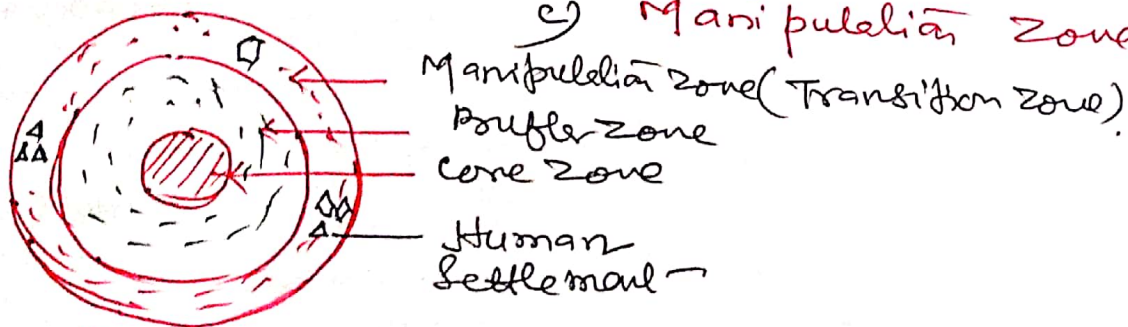 c) Manipulation Zone
Manipulation Zone (Transition Zone).
Buffer Zone
Core Zone
Human
Settlement